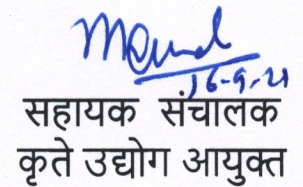 16-9-21
सहायक संचालक
कृते उद्योग आयुक्त